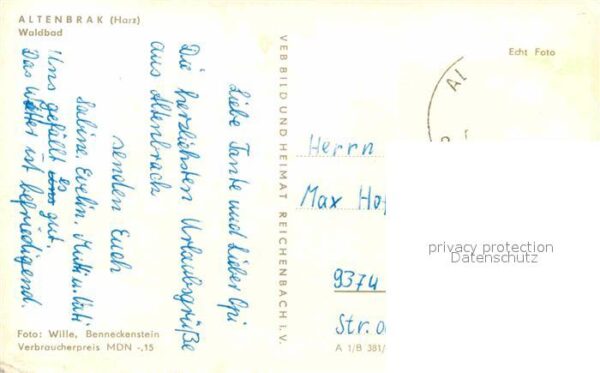 ALTENBRAK (Harz)
Waldbad
Liebe Tante und Lieber Opi
Die herzlichsten Urlaubsgrüße
aus Altenbrach
senden Euch
Sabine, Evelin, Mutti u. Vati
Uns gefällt es uns gut.
Das Wetter ist befriedigend.
Foto: Wille, Benneckenstein
Verbraucherpreis MDN -,15
VEB BILD UND HEIMAT REICHENBACH I. V.
Echt Foto
Al
Herrn
Max Hof
9374
Str. d
A 1/B 381/
privacy protection
Datenschutz